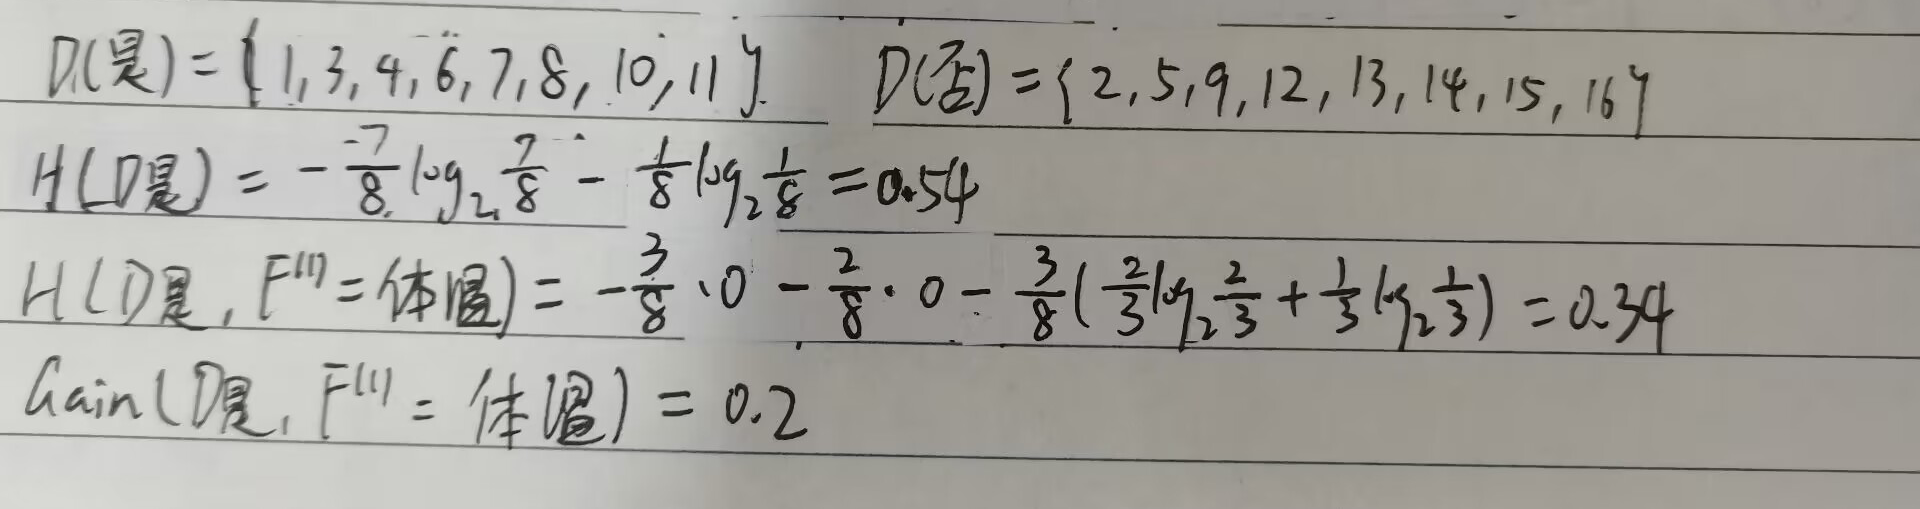 D(是)={1,3,4,6,7,8,10,11} D(否)={2,5,9,12,13,14,15,16}
H(D是)=-7/8 log₂ 7/8 - 1/8 log₂ 1/8 =0.54
H(D是,F⁽¹⁾=体温)=-3/8·0-2/8·0-3/8(2/3 log₂ 2/3+1/3 log₂ 1/3)=0.34
Gain(D是,F⁽¹⁾=体温)=0.2